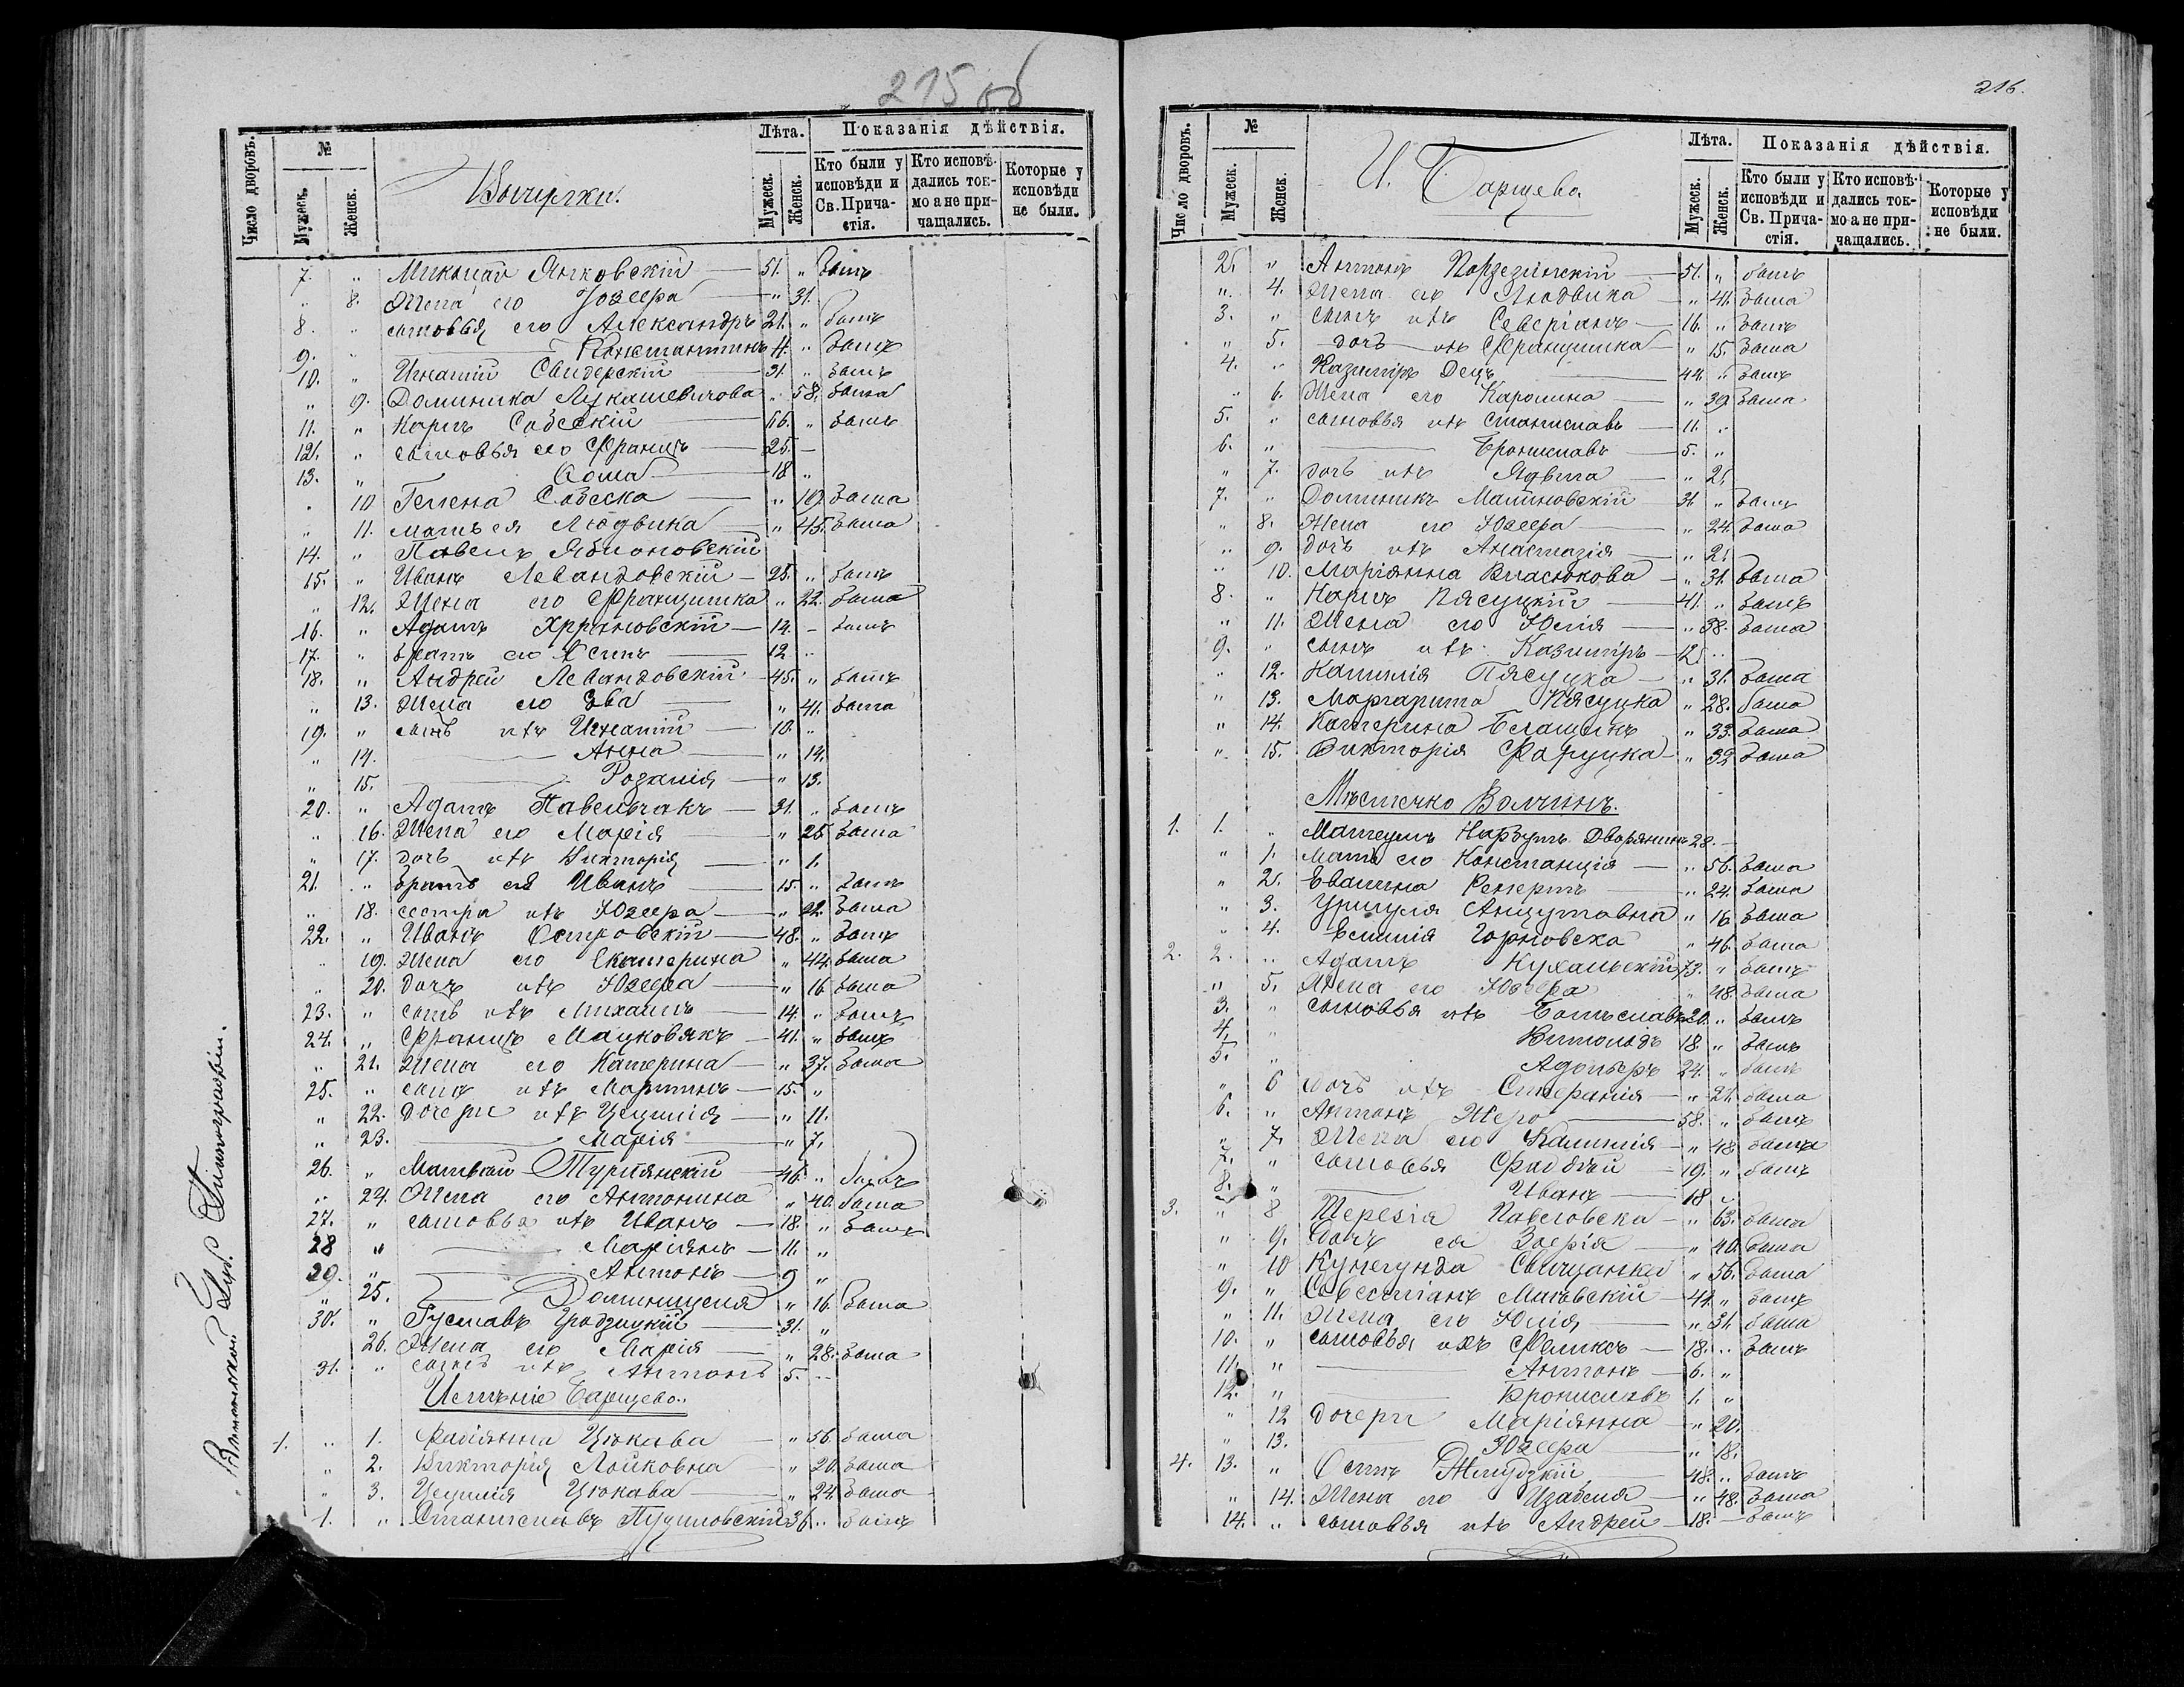 215 об
Число дворовъ.
№
Мужеск.
Женск.
Вычулки.
Лѣта.
Мужеск.
Женск.
Показанія дѣйствія.
Кто были у исповѣди и Св. Прича- стія.
Кто исповѣ- дались ток- мо а не при- чащались.
Которые у исповѣди не были.
7. " Миколай Янковскій — 51. " былъ
" 8. Жена его Юзефа — " 31.
8. " сыновья его Александръ 21. " былъ
9. " — Константинъ 4. " былъ
10. " Игнатій Свидерскій 31. " былъ
" 9. Доминика Лукашевичова " 58. была
11. " Карлъ Собескій 66. " былъ
12. " сыновья его Францъ — 25. —
13. " — Фома — 18 "
" 10 Гелена Собеска — " 19. была
" 11. мать ея Людвика — " 45. была
14. " Павелъ Яблоновскій
15. " Иванъ Левандовскій — 28. " былъ
" 12. Жена его Францишка " 22. была
16. " Адамъ Хршановскій — 14. — былъ
17. " братъ его Осипъ — 12 "
18. " Андрей Левандовскій 45. " былъ
" 13. Жена его Эва — " 41. была
19. " сынъ ихъ Игнатій — 18. "
" 14. — Анна — " 14.
" 15. — Розалія — " 13.
20. " Адамъ Павельчакъ — 31. " былъ
" 16. Жена его Марія — " 25 была
" 17. дочь ихъ Викторія — " 1.
21. " братъ его Иванъ — 15. " былъ
" 18. сестра ихъ Юзефа — " 22. была
22. " Иванъ Осиповскій — 48. " былъ
" 19. Жена его Екатерина " 44. была
" 20. дочь ихъ Юзефа — " 16 была
23. " сынъ ихъ Михаилъ — 14. " былъ
24. " Францъ Мацковякъ — 41. " былъ
" 21. Жена его Катерина — " 37. была
25. " сынъ ихъ Мартинъ — 15. "
" 22. дочери ихъ Цецилія — " 11.
" 23. — Марія — " 7.
26. " Матвѣй Турлянскій — 46. " былъ
" 24. Жена его Антонина " 40. была
27. " сыновья ихъ Иванъ — 18. " былъ
28 " — Маріянъ — 11. "
29. " — Антонъ — 9 "
" 25. — Доминицеля " 16. была
30. " Густавъ Гродзицкій — 31. "
" 26. Жена его Марія — " 28. была
31. " сынъ ихъ Антонъ 5. "
Имѣніе Барщево.
1. " 1. Маріянна Цюкова — " 56. была
" 2. Викторія Лойковна — " 20. была
" 3. Цецилія Цюкова — " 24. была
1. " Станиславъ 36. " былъ
Типографіи.
216.
Число дворовъ.
№
Мужеск.
Женск.
И. Барщево.
Лѣта.
Мужеск.
Женск.
Показанія дѣйствія.
Кто были у исповѣди и Св. Прича- стія.
Кто исповѣ- дались ток- мо а не при- чащались.
Которые у исповѣди не были.
2. " Антонъ Порзезинскій — 51. " былъ
" 4. Жена его Людвика — " 41. была
3. " сынъ ихъ Северіанъ — 16. " былъ
" 5. дочь ихъ Францишка — " 15. была
4. " Казиміръ Децъ 44. " былъ
" 6. Жена его Каролина — " 39. была
5. " сыновья ихъ Станиславъ — 11. "
6. " — Брониславъ — 5. "
" 7. дочь ихъ Ядвига — " 2.
7. " Доминикъ Малиновскій 31. " былъ
" 8. Жена его Юзефа — " 24. была
" 9. дочь ихъ Анастазія — " 2.
" 10. Маріянна Власюкова — " 31. была
8. " Карлъ Пясуцкій — 41. " былъ
" 11. Жена его Юлія — " 38. была
9. " сынъ ихъ Казиміръ — 12 "
" 12. Камилія Пясуцка — " 31. была
" 13. Маргарита Пясуцка " 28. была
" 14. Катерина " 33. была
" 15. Викторія Фаруцка — " 32 была
Мѣстечко Волчинъ.
1. 1. " Матеушъ Нарбутъ Дворянинъ 28. —
" 1. Мать его Констанція — " 56. была
" 2. Евалина Ренертъ — " 24. была
" 3. Уршуля Анцутовна " 16 была
" 4. Емилія Горновска " 46. была
2. 2. " Адамъ Кухальскій 73. " былъ
" 5. Жена его Юзефа " 48. была
3. " сыновья ихъ Болеславъ 20. " былъ
4. " Витольдъ 18. " былъ
5. " Адольфъ 24. " былъ
" 6 дочь ихъ Стефанія — " 21. была
6. " Антонъ Жеро — 58. " былъ
" 7. Жена его Камилія — " 48 была
7. " сыновья — 19. " былъ
8. " — Иванъ — 18 "
3. " 8 Терезія Павловска — " 63. была
" 9. дочь ея Зофія — " 40. была
" 10 Кунегунда " 56. была
9. " Себестіанъ Маковскій — 44. " былъ
" 11. Жена его Юлія — " 51. была
10. " сыновья ихъ Феликсъ — 18. " былъ
11. " — Антонъ — 6. "
12. " — Брониславъ 1. "
" 12 дочери Маріянна — " 20.
" 13. — Юзефа — " 18.
4. 13. " Осипъ Жмудзкій 48. " былъ
" 14. Жена его Изабеля — " 48. была
14. " сыновья ихъ Андрей — 18. — былъ